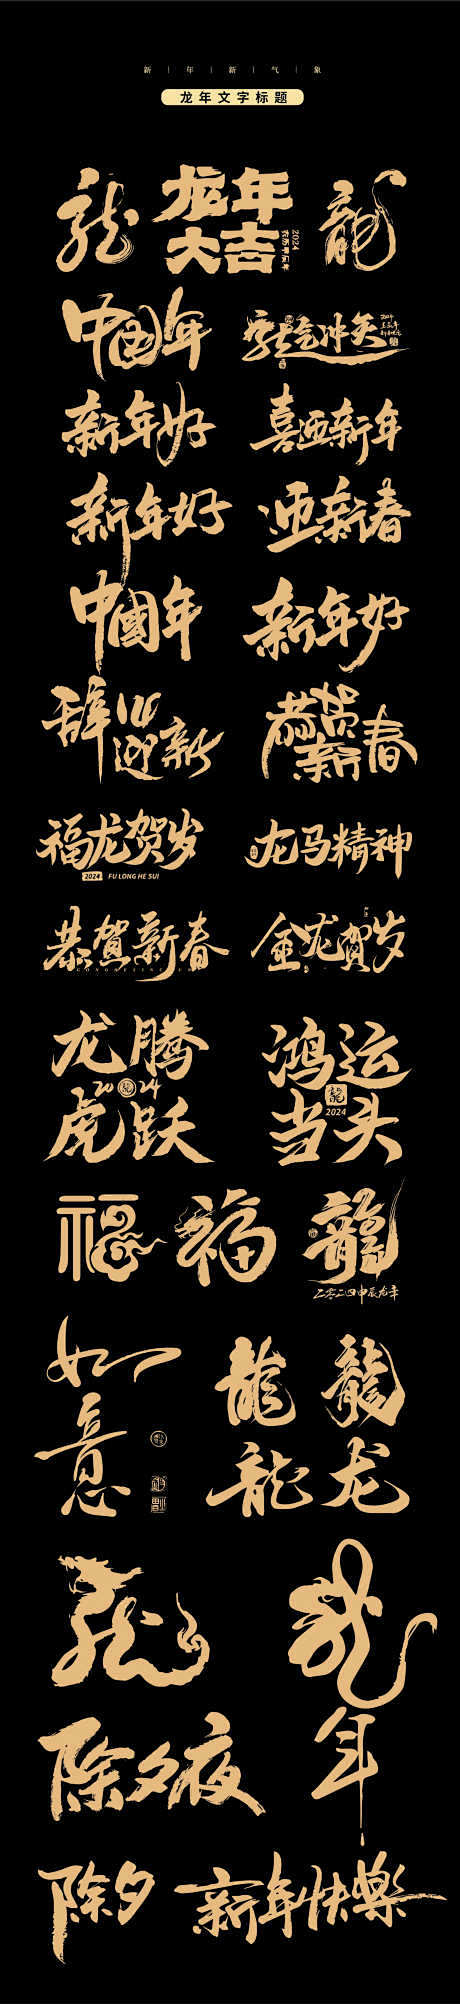 新 | 年 | 新 | 气 | 象
龙年文字标题
龍
龙年
大吉
2024
农历甲辰年
龍
中国年
龍气冲天
2024
新年好
喜迎新年
新年好
迎新春
中國年
新年好
辞旧
迎新
恭贺
新春
福龙贺岁
2024 FU LONG HE SUI
龙马精神
恭贺新春
金龙贺岁
龙腾
2024
虎跃
鸿运
龍
2024
当头
福
福
龍
二零二四甲辰龙年
如
意
龍
龍
龍
龙
龍
龍
年
除夕夜
除夕
新年快樂